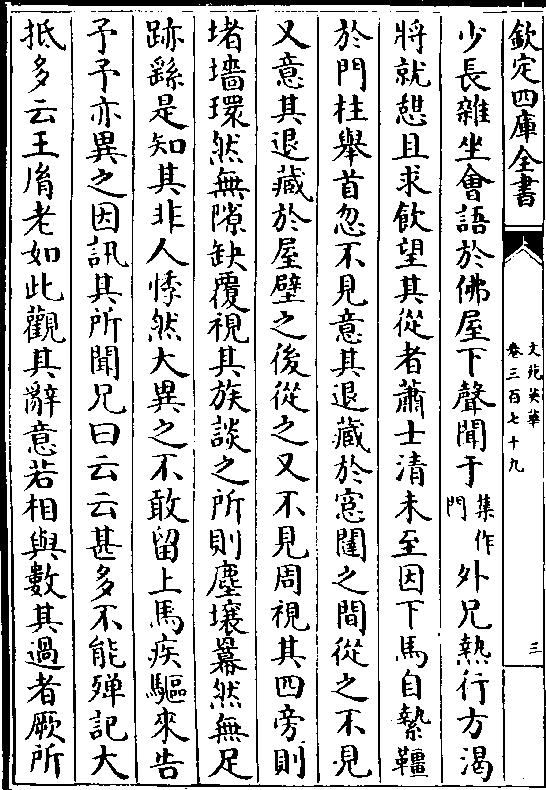 欽定四庫全書
文苑英華
卷三百七十九
三
少長雜坐會語於佛屋下聲聞于集作門外兄熱行方渴
將就憇且求飲望其從者蕭士清未至因下馬自縶韁
於門柱舉首忽不見意其退藏於窓闥之間從之不見
又意其退藏於屋壁之後從之又不見周視其四旁則
堵墻環然無隙缺覆視其族談之所則塵壤羃然無足
跡繇是知其非人悸然大異之不敢留上馬疾驅來告
予予亦異之因訊其所聞兄曰云云甚多不能殫記大
抵多云王𦙍老如此觀其辭意若相與數其過者厥所